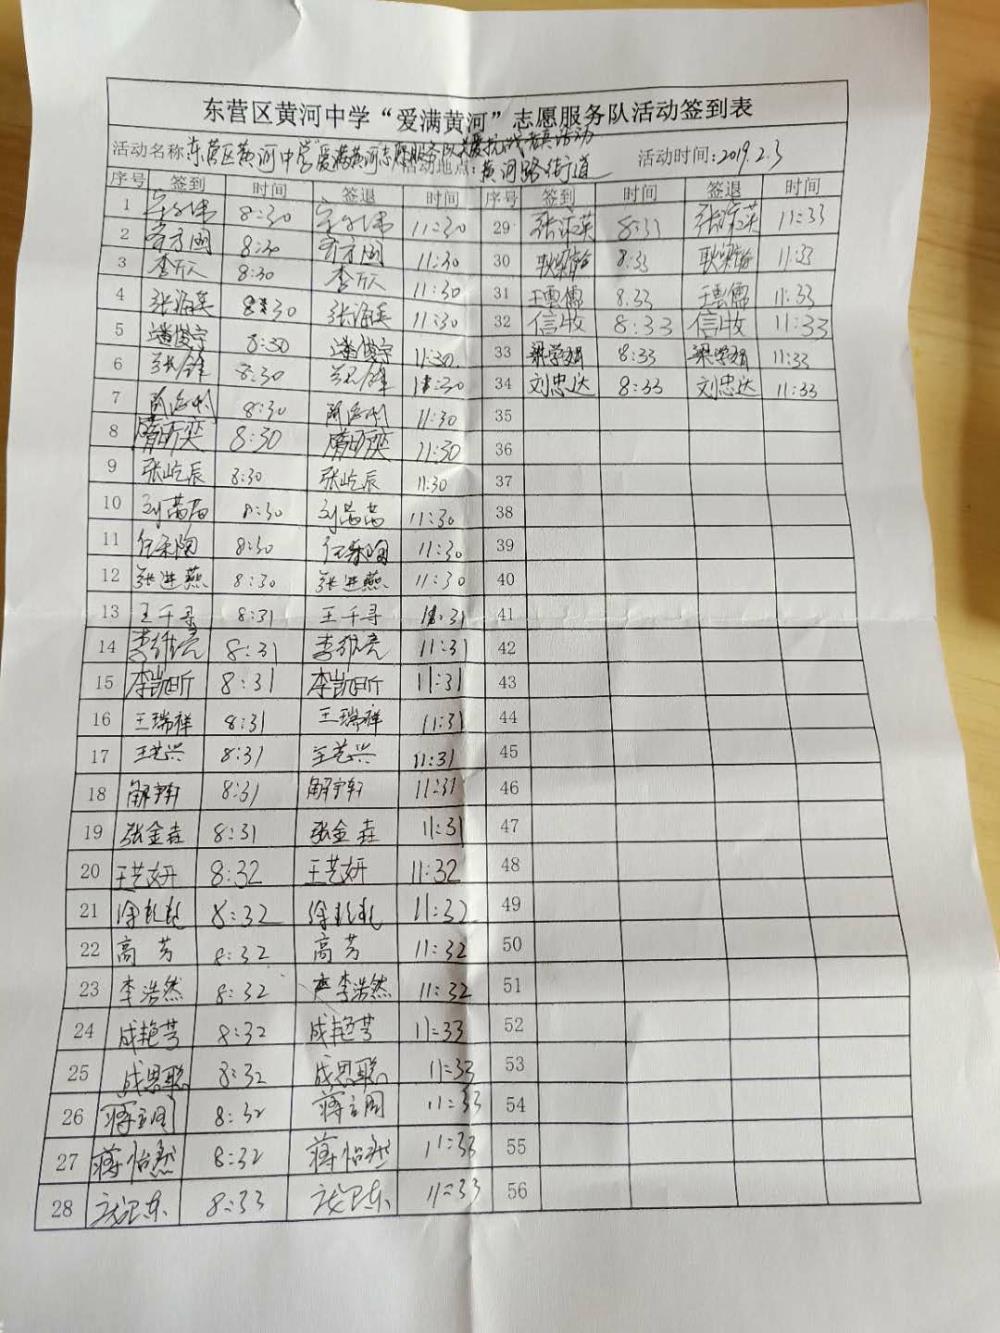 东营区黄河中学“爱满黄河”志愿服务队活动签到表
活动名称:东营区黄河中学“爱满黄河”志愿服务队关爱抗战老兵活动 活动地点:黄河路街道 活动时间:2019.2.3
序号 签到 时间 签退 时间 序号 签到 时间 签退 时间
1 8:30 11:30 29 8:33 11:33
2 8:30 11:30 30 8:33 11:33
3 李欣 8:30 李欣 11:30 31 王雲儒 8.33 王雲儒 11:33
4 张海英 8:30 张海英 11:30 32 信收 8:33 信收 11:33
5 潘俊宇 8:30 潘俊宇 11:30 33 梁学娟 8:33 梁学娟 11:33
6 8:30 11:30 34 刘忠达 8:33 刘忠达 11:33
7 8:30 11:30 35
8 隋昕奕 8:30 隋昕奕 11:30 36
9 张屹辰 8:30 张屹辰 11:30 37
10 刘茜茜 8:30 刘茜茜 11:30 38
11 8:30 11:30 39
12 张进燕 8:30 张进燕 11:30 40
13 王千寻 8:31 王千寻 11.31 41
14 李维亮 8:31 李维亮 11:31 42
15 李凯昕 8:31 李凯昕 11:31 43
16 王瑞祥 8:31 王瑞祥 11:31 44
17 王艺兴 8:31 王艺兴 11:31 45
18 解宇轩 8:31 解宇轩 11:31 46
19 张金垚 8:31 张金垚 11:31 47
20 王艺妍 8:32 王艺妍 11:32 48
21 8:32 11:32 49
22 高芳 8:32 高芳 11:32 50
23 李浩然 8:32 李浩然 11:32 51
24 成艳芳 8:32 成艳芳 11:33 52
25 成思聪 8:32 成思聪 11:33 53
26 蒋立周 8:32 蒋立周 11:33 54
27 蒋怡然 8:32 蒋怡然 11:33 55
28 8:33 11:33 56